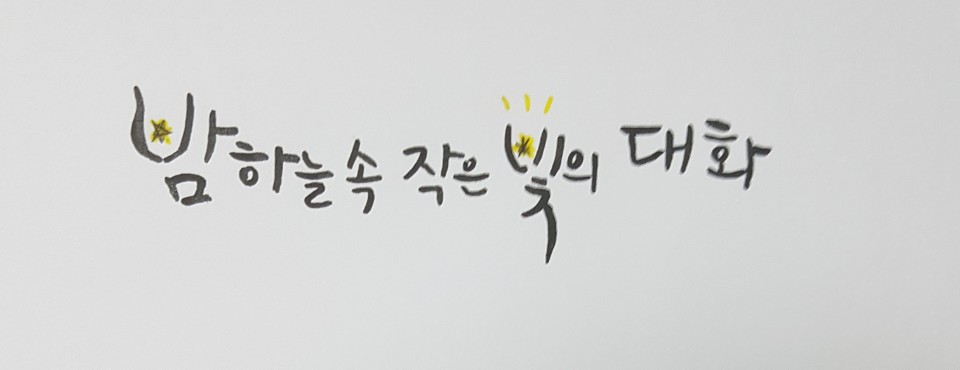 밤하늘속 작은 빛의 대화